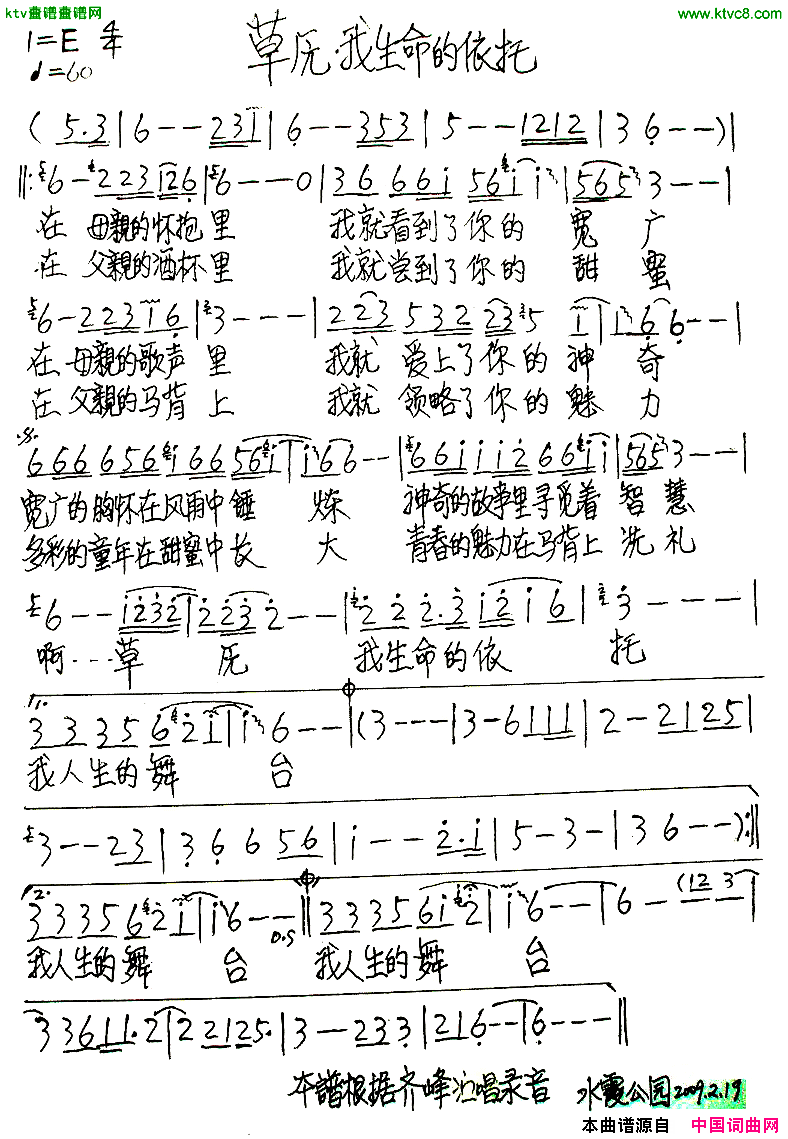 ktv查谱查谱网
http://www.ktvc8.com
1=E 4/4
♩=60
草原·我生命的依托
( 5.3 | 6 - - 231 | 6 - - 353 | 5 - - 1212 | 3 6 - - ) |
||: 6 - 223126 | 6 - - 0 | 36 661 561 1 | 565 3 - - |
在 母亲的怀抱里 我就看到了你的 宽广
在 父亲的酒杯里 我就尝到了你的 甜蜜
6 - 22316 | 3 - - - | 223 532 235 1 | 166 - - |
在 母亲的歌声里 我就 爱上了你的神 奇
在 父亲的马背上 我就 领略了你的魅 力
666 6656 1 66 561 | 166 - - | 66111266 11 | 5653 - - |
宽广的胸怀在风雨中锤 炼 神奇的故事里寻觅着 智慧
多彩的童年在甜蜜中长 大 青春的魅力在马背上 洗礼
6 - - 1232 | 2232 - - | 2 2 2.3 12 16 | 3 - - - |
啊···草 原 我生命的依 托
1.
3 3 35 621 | 1 6 - - | (3 - - - | 3 - 6111 | 2 - 2125 |
我人生的舞 台
3 - - 23 | 36 6 56 | 1 - - 2.1 | 5 - 3 - | 36 - - ) :||
2.
3335621 | 16 - - || 3335612 | 16 - - | 6 - (12 3 |
D.S
我人生的舞 台 我人生的舞 台
33611.2 | 22125. | 3 - 233 | 216 - - | 6 - - - ||
本谱根据齐峰演唱录音 水霞公园2009.2.19
本曲谱源自 中国词曲网